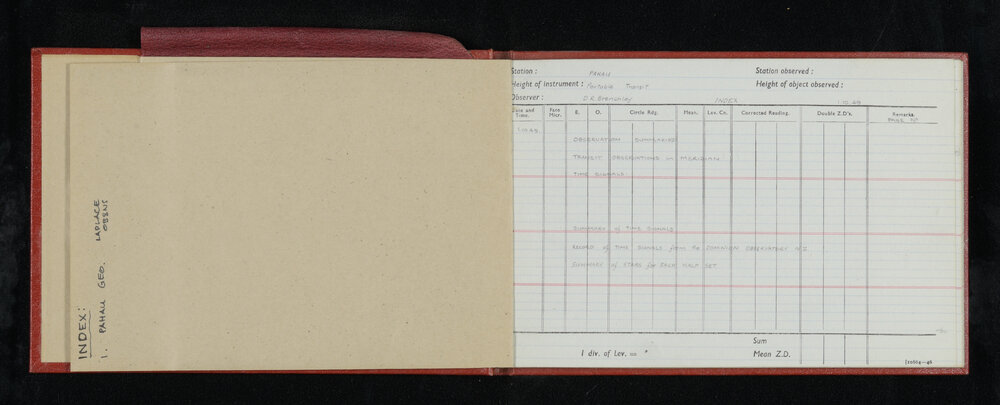 INDEX:
1. PAHAU GEO. LAPLACE OBSNS
Station : PAHAU
Station observed :
Height of instrument : Portable Transit
Height of object observed :
Observer : D.R. INDEX 1.10.48
Date and Time. Face Micr. E. O. Circle Rdg. Mean. Lev. Cn. Corrected Reading. Double Z.D's. Remarks.
PAGE No
1.10.48
OBSERVATION SUMMARIES
TRANSIT OBSERVATIONS in MERIDIAN
TIME SIGNALS
SUMMARY of TIME SIGNALS
RECORD of TIME SIGNALS from the DOMINION OBSERVATORY N.Z.
SUMMARY of STARS for EACH HALF SET
Sum
1 div. of Lev. = "
Mean Z.D.